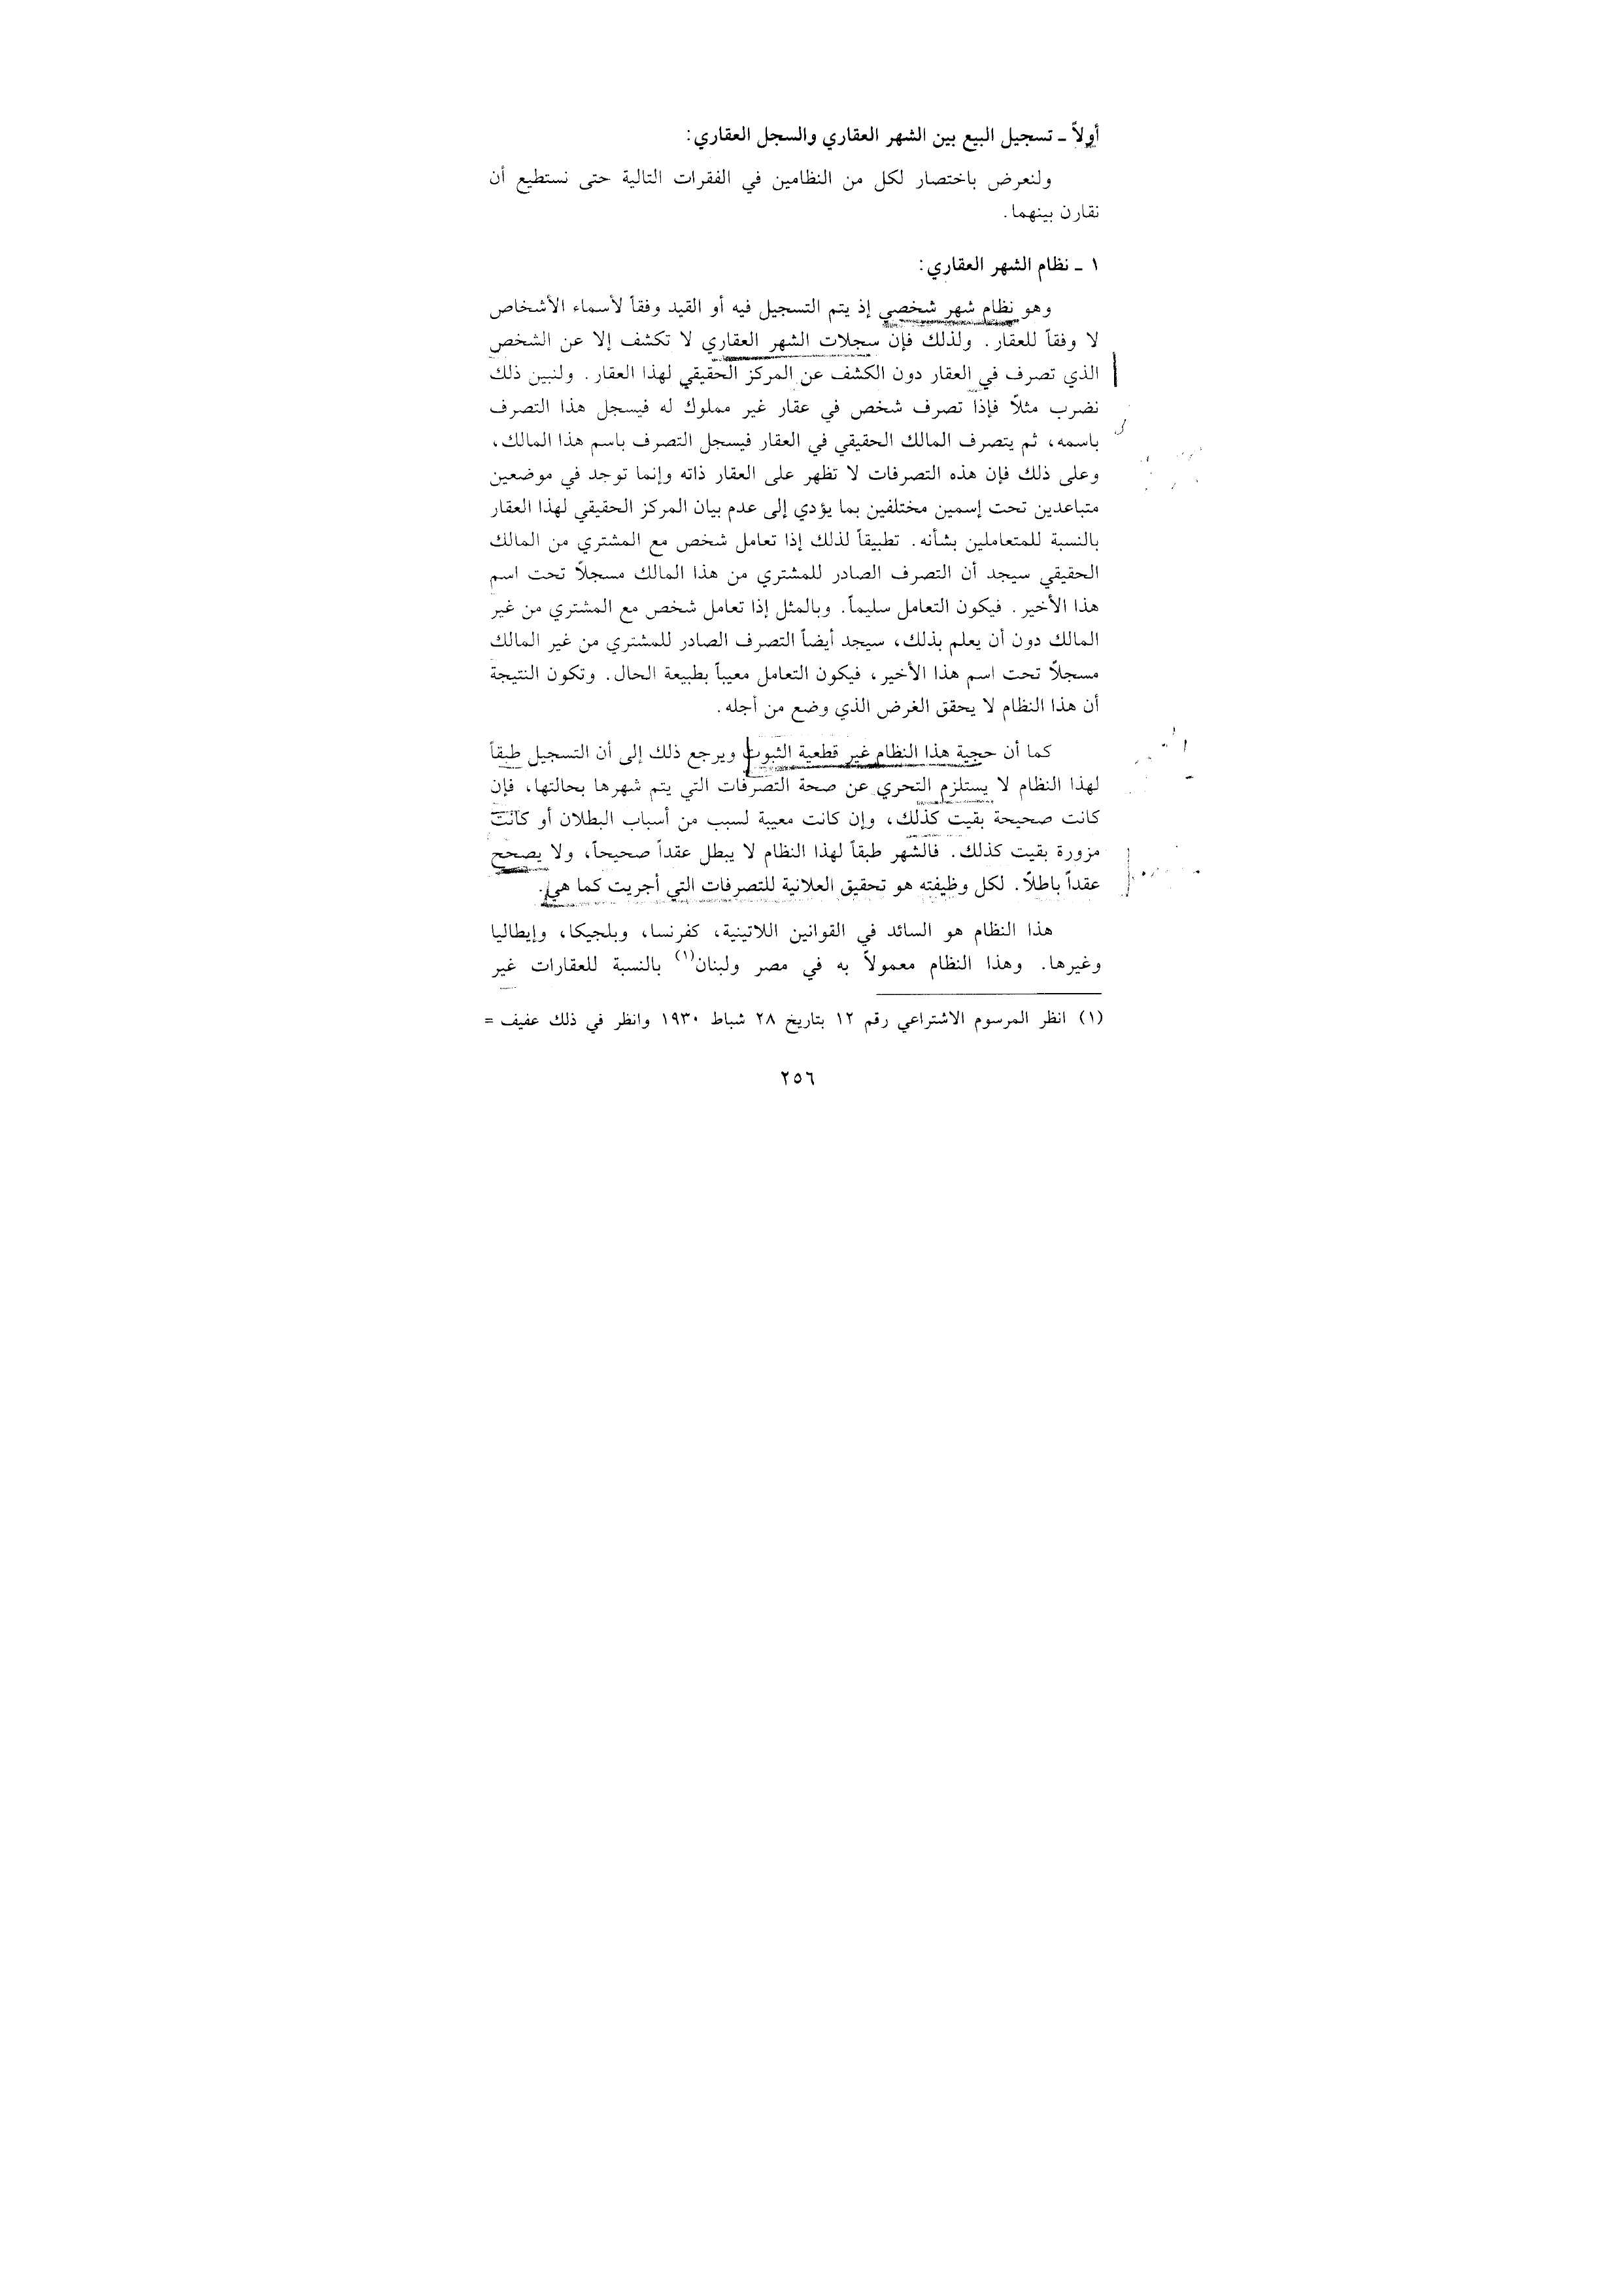 أولاً ـ تسجيل البيع بين الشهر العقاري والسجل العقاري:
ولنعرض باختصار لكل من النظامين في الفقرات التالية حتى نستطيع أن
نقارن بينهما.
١ ـ نظام الشهر العقاري:
وهو نظام شهر شخصي إذ يتم التسجيل فيه أو القيد وفقاً لأسماء الأشخاص
لا وفقاً للعقار. ولذلك فإن سجلات الشهر العقاري لا تكشف إلا عن الشخص
الذي تصرف في العقار دون الكشف عن المركز الحقيقي لهذا العقار. ولنبين ذلك
نضرب مثلاً فإذا تصرف شخص في عقار غير مملوك له فيسجل هذا التصرف
باسمه، ثم يتصرف المالك الحقيقي في العقار فيسجل التصرف باسم هذا المالك،
وعلى ذلك فإن هذه التصرفات لا تظهر على العقار ذاته وإنما توجد في موضعين
متباعدين تحت إسمين مختلفين بما يؤدي إلى عدم بيان المركز الحقيقي لهذا العقار
بالنسبة للمتعاملين بشأنه. تطبيقاً لذلك إذا تعامل شخص مع المشتري من المالك
الحقيقي سيجد أن التصرف الصادر للمشتري من هذا المالك مسجلاً تحت اسم
هذا الأخير. فيكون التعامل سليماً. وبالمثل إذا تعامل شخص مع المشتري من غير
المالك دون أن يعلم بذلك، سيجد أيضاً التصرف الصادر للمشتري من غير المالك
مسجلاً تحت اسم هذا الأخير، فيكون التعامل معيباً بطبيعة الحال. وتكون النتيجة
أن هذا النظام لا يحقق الغرض الذي وضع من أجله.
كما أن حجية هذا النظام غير قطعية الثبوت ويرجع ذلك إلى أن التسجيل طبقاً
لهذا النظام لا يستلزم التحري عن صحة التصرفات التي يتم شهرها بحالتها، فإن
كانت صحيحة بقيت كذلك، وإن كانت معيبة لسبب من أسباب البطلان أو كانت
مزورة بقيت كذلك. فالشهر طبقاً لهذا النظام لا يبطل عقداً صحيحاً، ولا يصحح
عقداً باطلاً. لكل وظيفته هو تحقيق العلانية للتصرفات التي أجريت كما هي.
هذا النظام هو السائد في القوانين اللاتينية، كفرنسا، وبلجيكا، وإيطاليا
وغيرها. وهذا النظام معمولاً به في مصر ولبنان(١) بالنسبة للعقارات غير
(١) انظر المرسوم الاشتراعي رقم ١٢ بتاريخ ٢٨ شباط ١٩٣٠ وانظر في ذلك عفيف =
٢٥٦